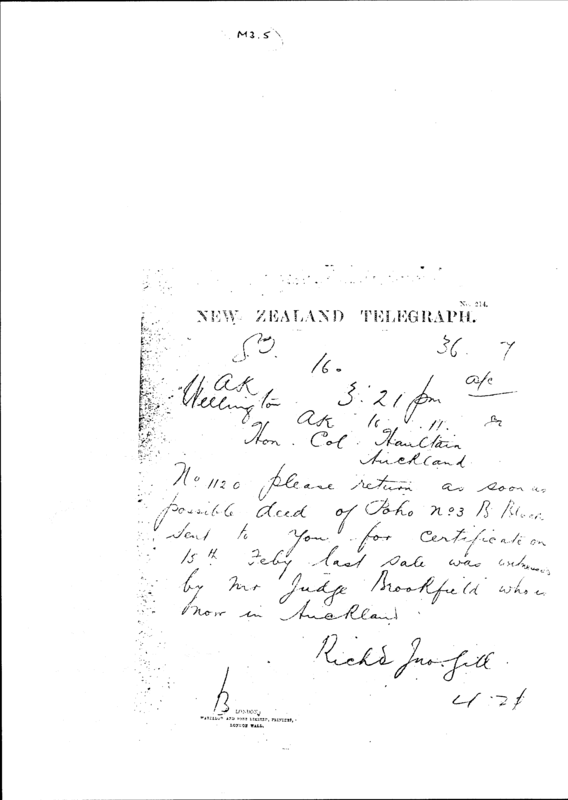 M3.5
No. 214.
NEW ZEALAND TELEGRAPH.
36. 7
16.
AK a/c
Wellington 3.21 pm
AK 16 . 11.
Hon. Col. Haultain
Auckland
No 1120 please return as soon as
possible deed of Poho No 3 B Block
sent to you for certificate on
15th Feby last sale was
by Mr Judge Brookfield who is
now in Auckland
Richd Jno. Gill
4.21
LONDON,
PRINTERS,
LONDON WALL.